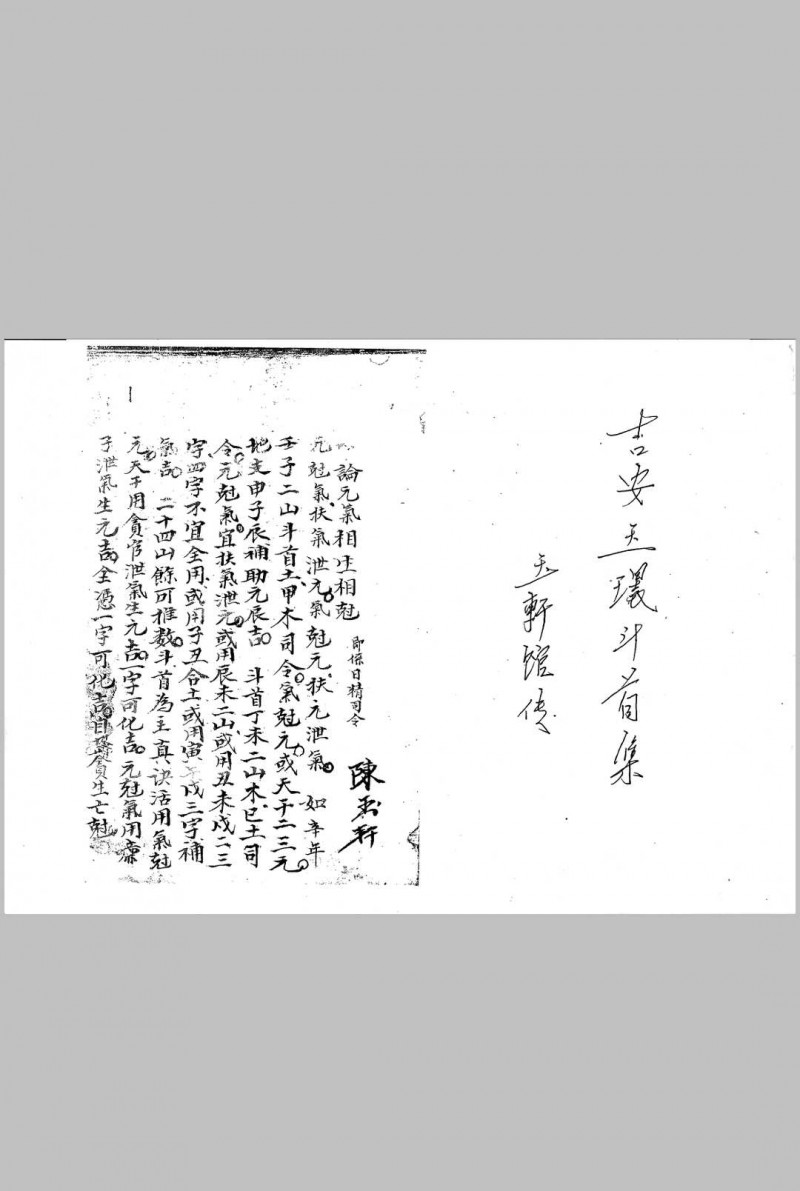 吉安王璣斗首集
玉軒館传
論元氣相生相尅 即係日精司令
陳玉軒
元尅氣扶氣泄元氣尅元扶元泄氣 如辛年
壬子二山斗首土甲木司令氣尅元或天干二三元
地支申子辰補助元辰吉 斗首丁未二山木己土司
令元尅氣宜扶氣泄元或用辰未二山或用丑未戌二三
字四字不宜全用或用子丑合土或用寅午戌三字補
氣吉 二十四山餘可推数斗首為主真訣活用氣尅
元天干用貪官泄氣生元吉一字可化吉元尅氣用廉
子泄氣生元吉全憑一字可化吉貪生亡尅